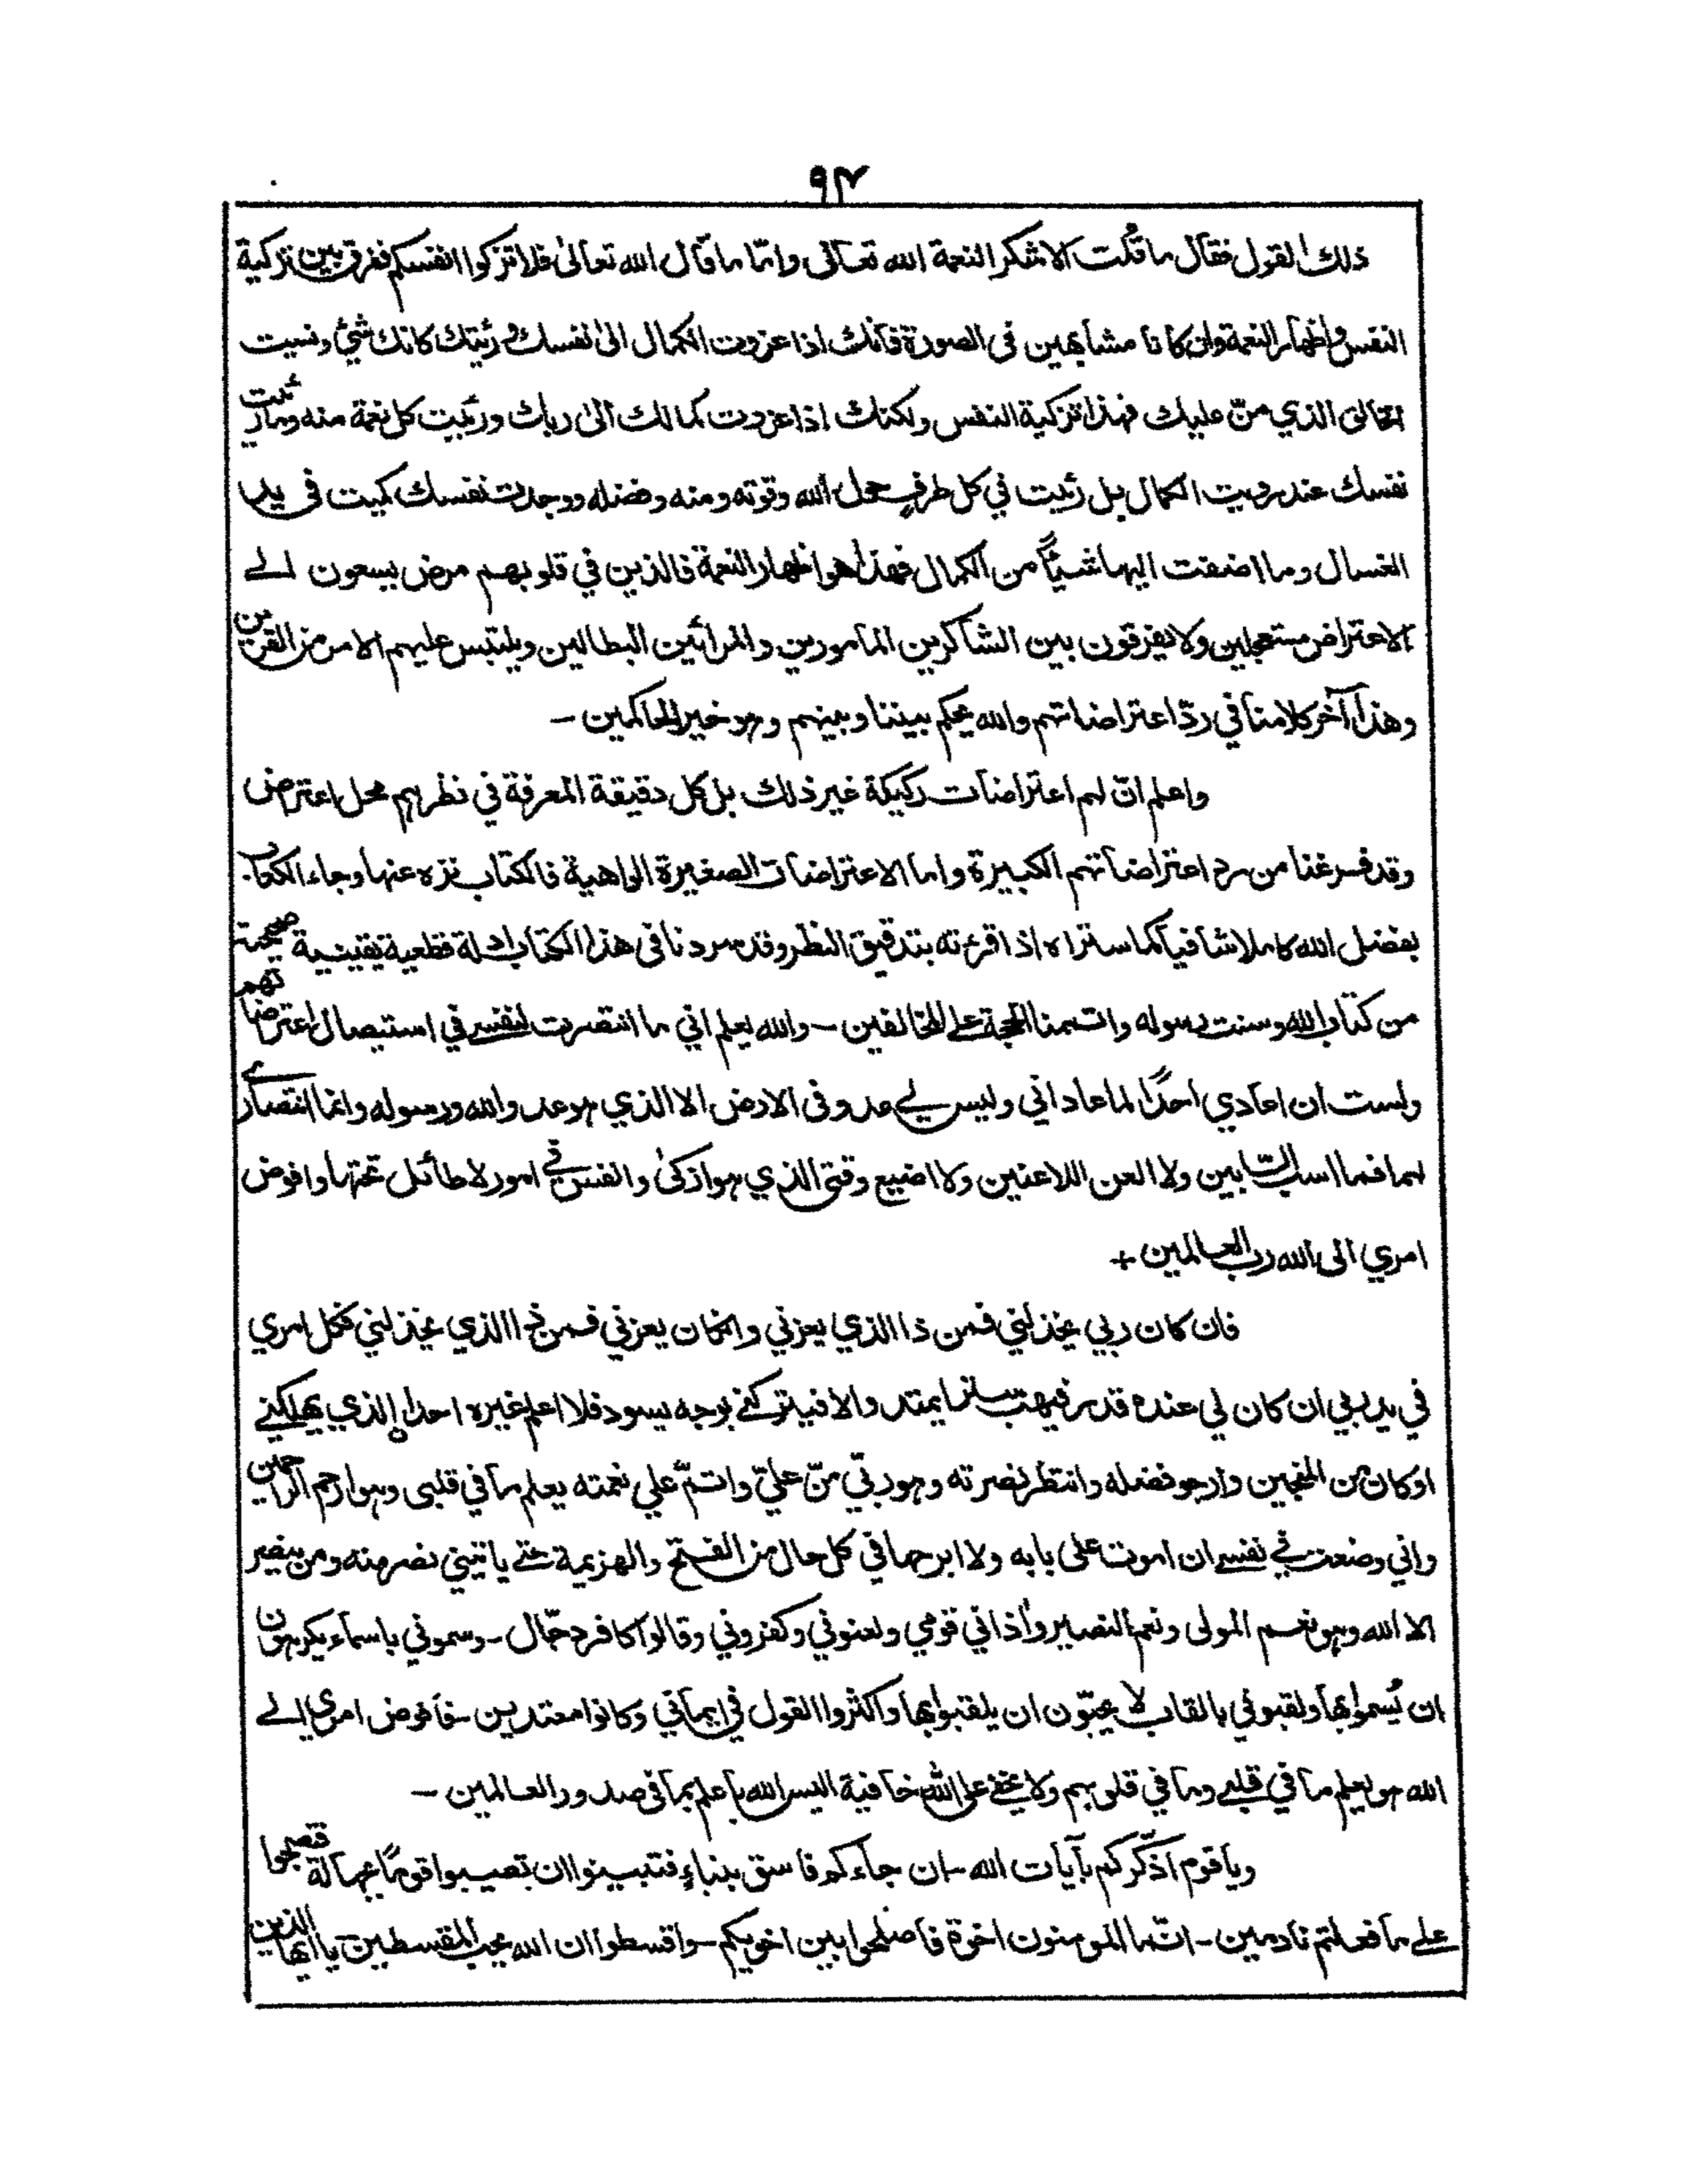 ٩٤
ذلك القول فقال ما قلت الا شكر النعمة الله تعالى وامّا ما قال الله تعالى فلا تزكوا انفسكم ففرق بين تزكية
النفس واظهار النعمة وان كانا مشابهين فى الصورة فانك اذا عزوت الكمال الى نفسك ورئيتك كانك شيئ ونسيت
الخالق الذي منّ عليك فهذا تزكية النفس ولكنك اذا عزوت كمالك الى ربك ورئيت كل نعمة منه ومارئيت
نفسك عند رويت الكمال بل رئيت في كل طرف حول الله وقوته ومنه وفضله ووجدت نفسك كميت فى يد
الغسال وما اضفت اليها شيئاً من الكمال فهذا هو اظهار النعمة فالذين في قلوبهم مرض يسعون الے
الاعتراض مستعجلين ولا يفرقون بين الشاكرين المامورين والمرائين البطالين ويلتبس عليهم الامر من القرين
وهذا آخر كلامنا في ردّ اعتراضاتهم والله يحكم بيننا وبينهم وهو خير الحاكمين –
واعلم انّ لهم اعتراضات ركيكة غير ذلك بل كل دقيقة المعرفة في نظرهم محل اعتراض
وقد فرغنا من رد اعتراضاتهم الكبيرة واما الاعتراضات الصغيرة الواهية فالكتاب نزه عنها وجاء الكتاب
بفضل الله كاملا شافيا كما ستراه اذا قرئته بتدقيق النظر وقد سردنا فى هذا الكتاب ادلة قطعية يقينية صحيحة
من كتاب الله وسنت رسوله واتممنا الحجة على المخالفين – والله يعلم اني ما انتصرت لنفسے في استيصال اعتراضاتهم
ولست ان اعادي احدًا لما عاداني وليس لے عدو فى الارض الا الذي هو عدو الله ورسوله وانما انتصارے
لهما فما اسبّ السّابين ولا العن اللاعنين ولا اضيع وقتى الذي هو ازكىٰ وانفس فے امور لا طائل تحتها وافوض
امري الى الله رب العالمين +
فان كان ربي يخذلني فمن ذا الذي يعزني وانكان يعزني فمن ذا الذي يخذلني فكل امري
في يد ربي ان كان لي عنده قدر فيهب ستر ايمتد والا فيتركنے بوجه يسود فلا اعلم غيره احدا الذي يهلكنے
او كان من المنجين وارجو فضله وانتظر نصرته وهو ربّي منّ عليّ واتمّ علي نعمته يعلم ما في قلبى وهو ارحم الراحمين
واني وضعت فے نفسے ان اموت على بابه ولا ابرحها في كل حال من الفتح والهزيمة حتے ياتيني نصر منه ومن ينصر
الا الله وهو نعم المولى ونعم النصير واٰذاني قومي ولعنوني وكفروني وقالوا كافر دجّال – وسموني باسماء يكرهون
ان يُسموا بها ولقبوني بالقاب لا يحبّون ان يلقبوا بها واكثروا القول في ايماني وكانوا معتدين – فافوض امري الے
الله هو يعلم ما في قلبے وما في قلوبهم ولا يخفے على الله خافية اليس الله باعلم بما فى صدور العالمين –
ويا قوم اذكّركم بآيات الله – ان جاءكم فاسق بنباءٍ فتبينوا ان تصيبوا قومًا بجهالة فتصبحوا
علے ما فعلتم نادمين – انّما المومنون اخوة فاصلحوا بين اخويكم – واقسطوا ان الله يحب المقسطين – يا ايها الذين